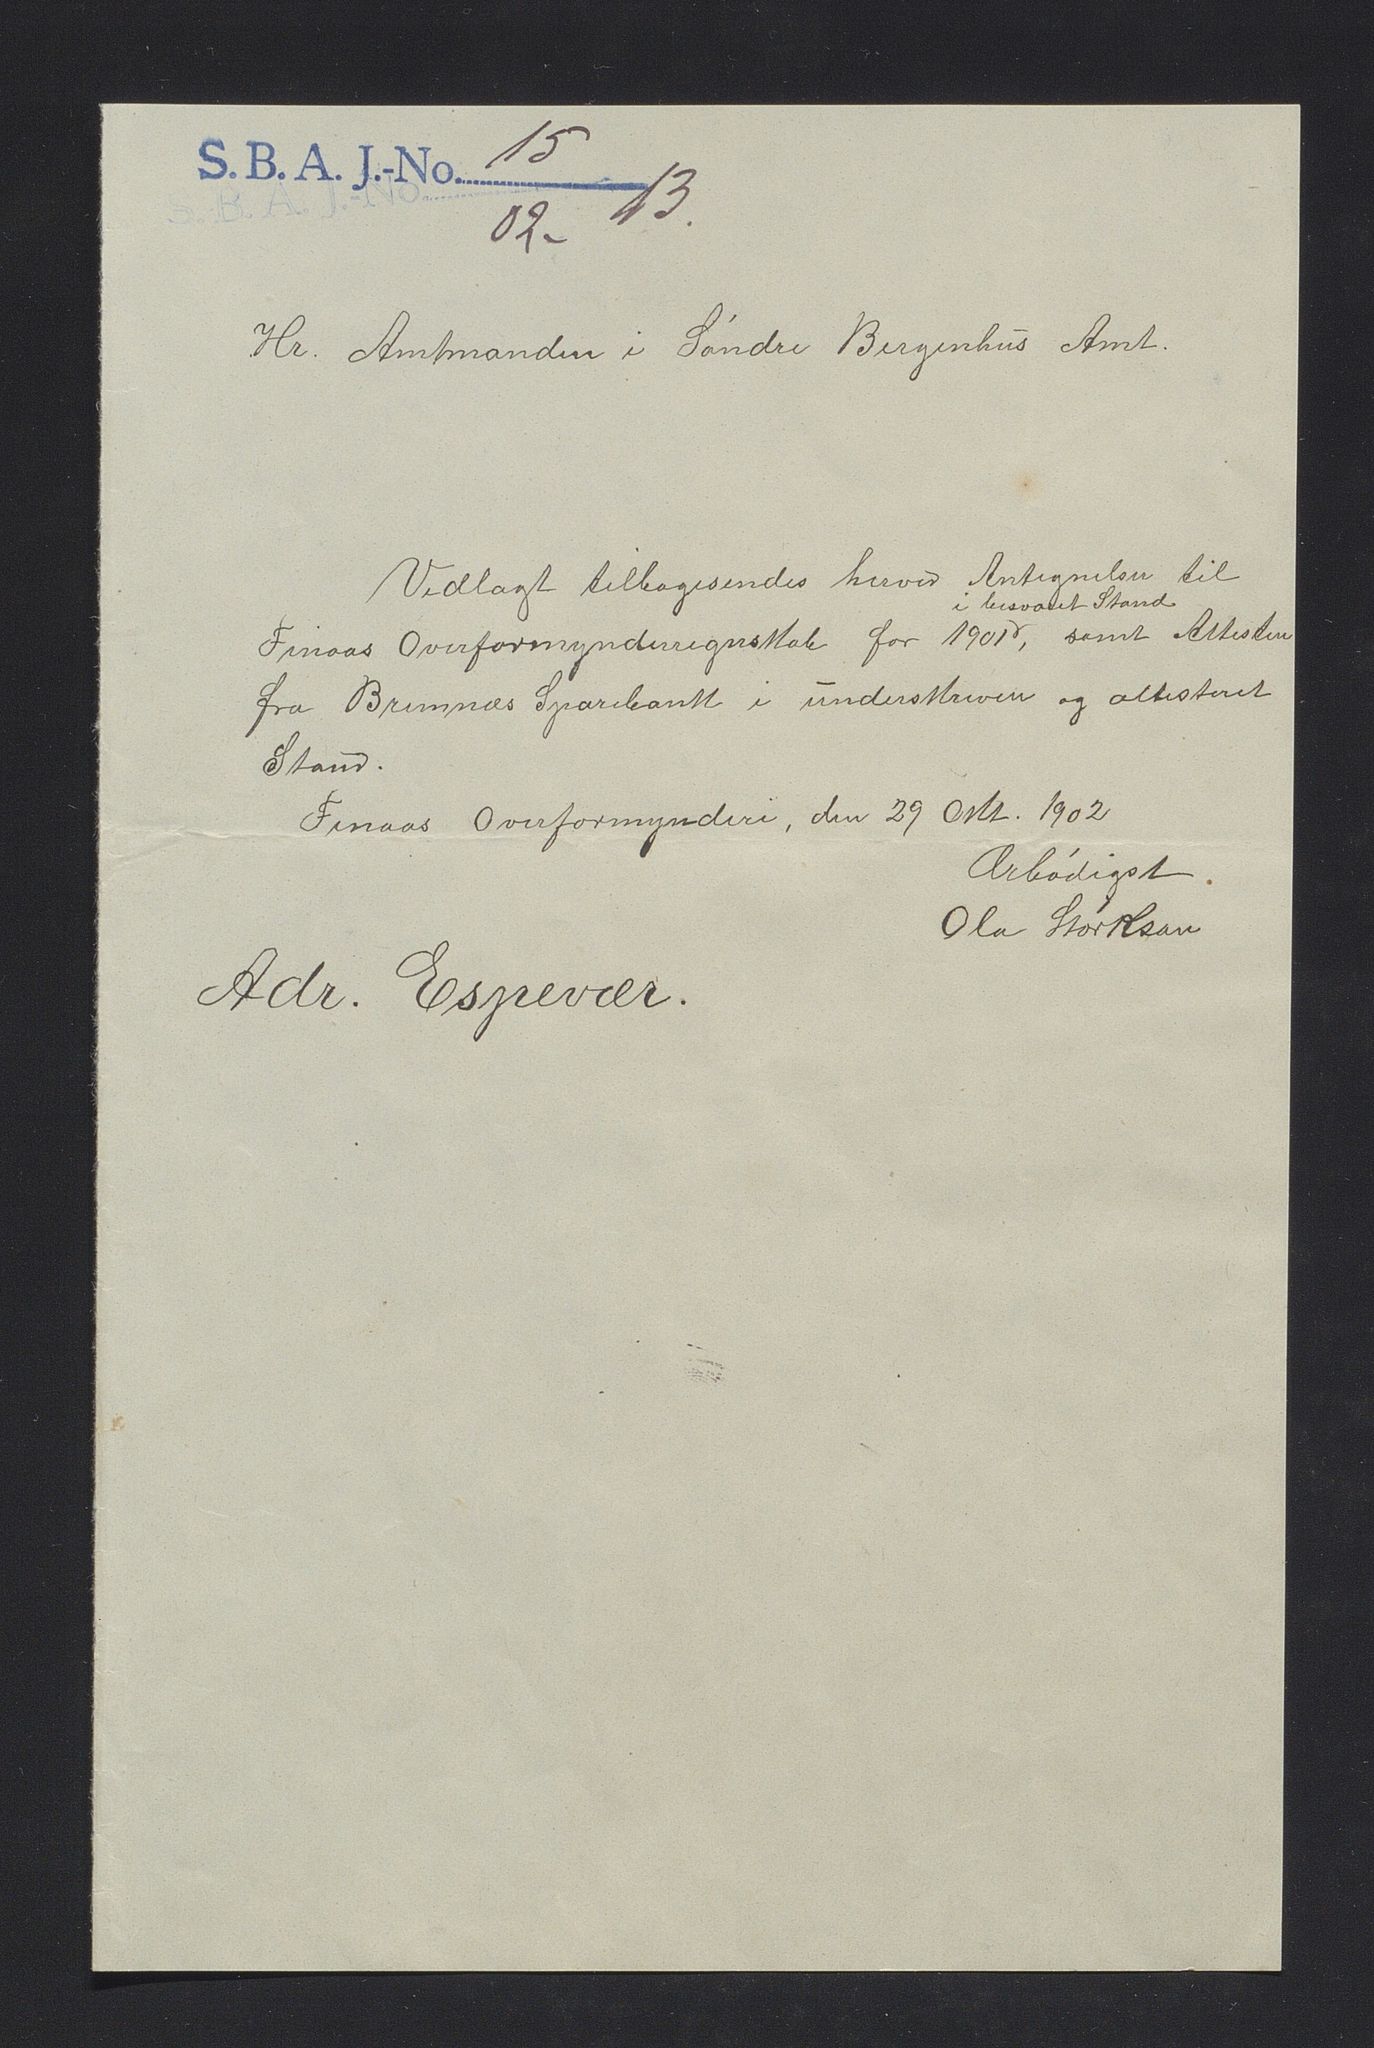 S. B. A. J.-No. 15
02- 13.
Hr. Amtmanden i Söndre Bergenhus Amt.
Vedlagt tilbagesendes herved Antegnelser til
i besvaret Stand
Finaas Overformynderregnskab for 1901, samt Attesten
fra Bremnæs Sparebank i underskreven og attesteret
Stand.
Finaas Overformynderi, den 29 Okt. 1902
Ærbödigst
Ola Störksan
Adr. Espevær.